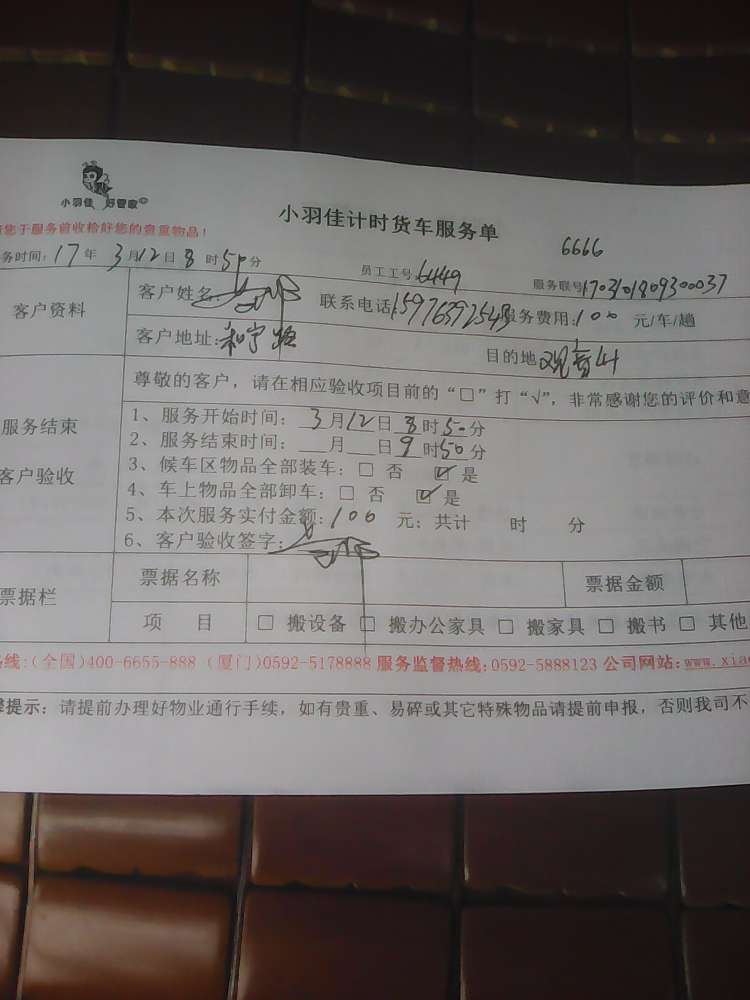 小羽佳 好管家
小羽佳计时货车服务单
6666
您于服务前收检好您的贵重物品！
务时间：17年3月12日8时50分
员工工号6449
服务联号1703101809300037
客户资料
客户姓名
联系电话15976392543
服务费用：100 元/车/趟
客户地址：和宁路
目的地 观音山
服务结束
客户验收
尊敬的客户，请在相应验收项目前的“□”打“√”，非常感谢您的评价和意
1、服务开始时间：3月12日8时50分
2、服务结束时间：___月___日9时50分
3、候车区物品全部装车：□ 否 ☑ 是
4、车上物品全部卸车：□ 否 ☑ 是
5、本次服务实付金额：100 元；共计 时 分
6、客户验收签字：
票据栏
票据名称
票据金额
项 目
□ 搬设备 □ 搬办公家具 □ 搬家具 □ 搬书 □ 其他
线：(全国)400-6655-888 (厦门)0592-5178888 服务监督热线：0592-5888123 公司网站：www.xia
提示：请提前办理好物业通行手续，如有贵重、易碎或其它特殊物品请提前申报，否则我司不